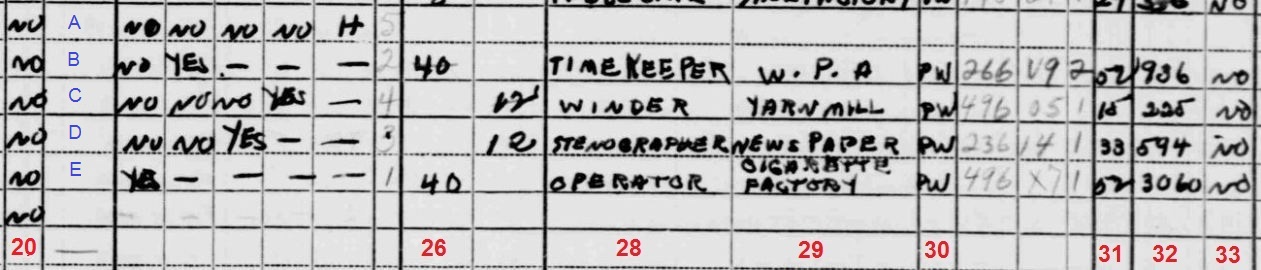 NO A NO NO NO NO H 5
NO B NO YES - - - 2 40 TIMEKEEPER W.P.A PW 266 V9 2 52 936 NO
NO C NO NO NO YES - 4 12 WINDER YARN MILL PW 496 05 1 15 225 NO
NO D NO NO YES - - 3 12 STENOGRAPHER NEWSPAPER PW 236 14 1 33 594 NO
NO E YES - - - - 1 40 OPERATOR CIGARETTE FACTORY PW 496 X7 1 52 3060 NO
NO
20 26 28 29 30 31 32 33